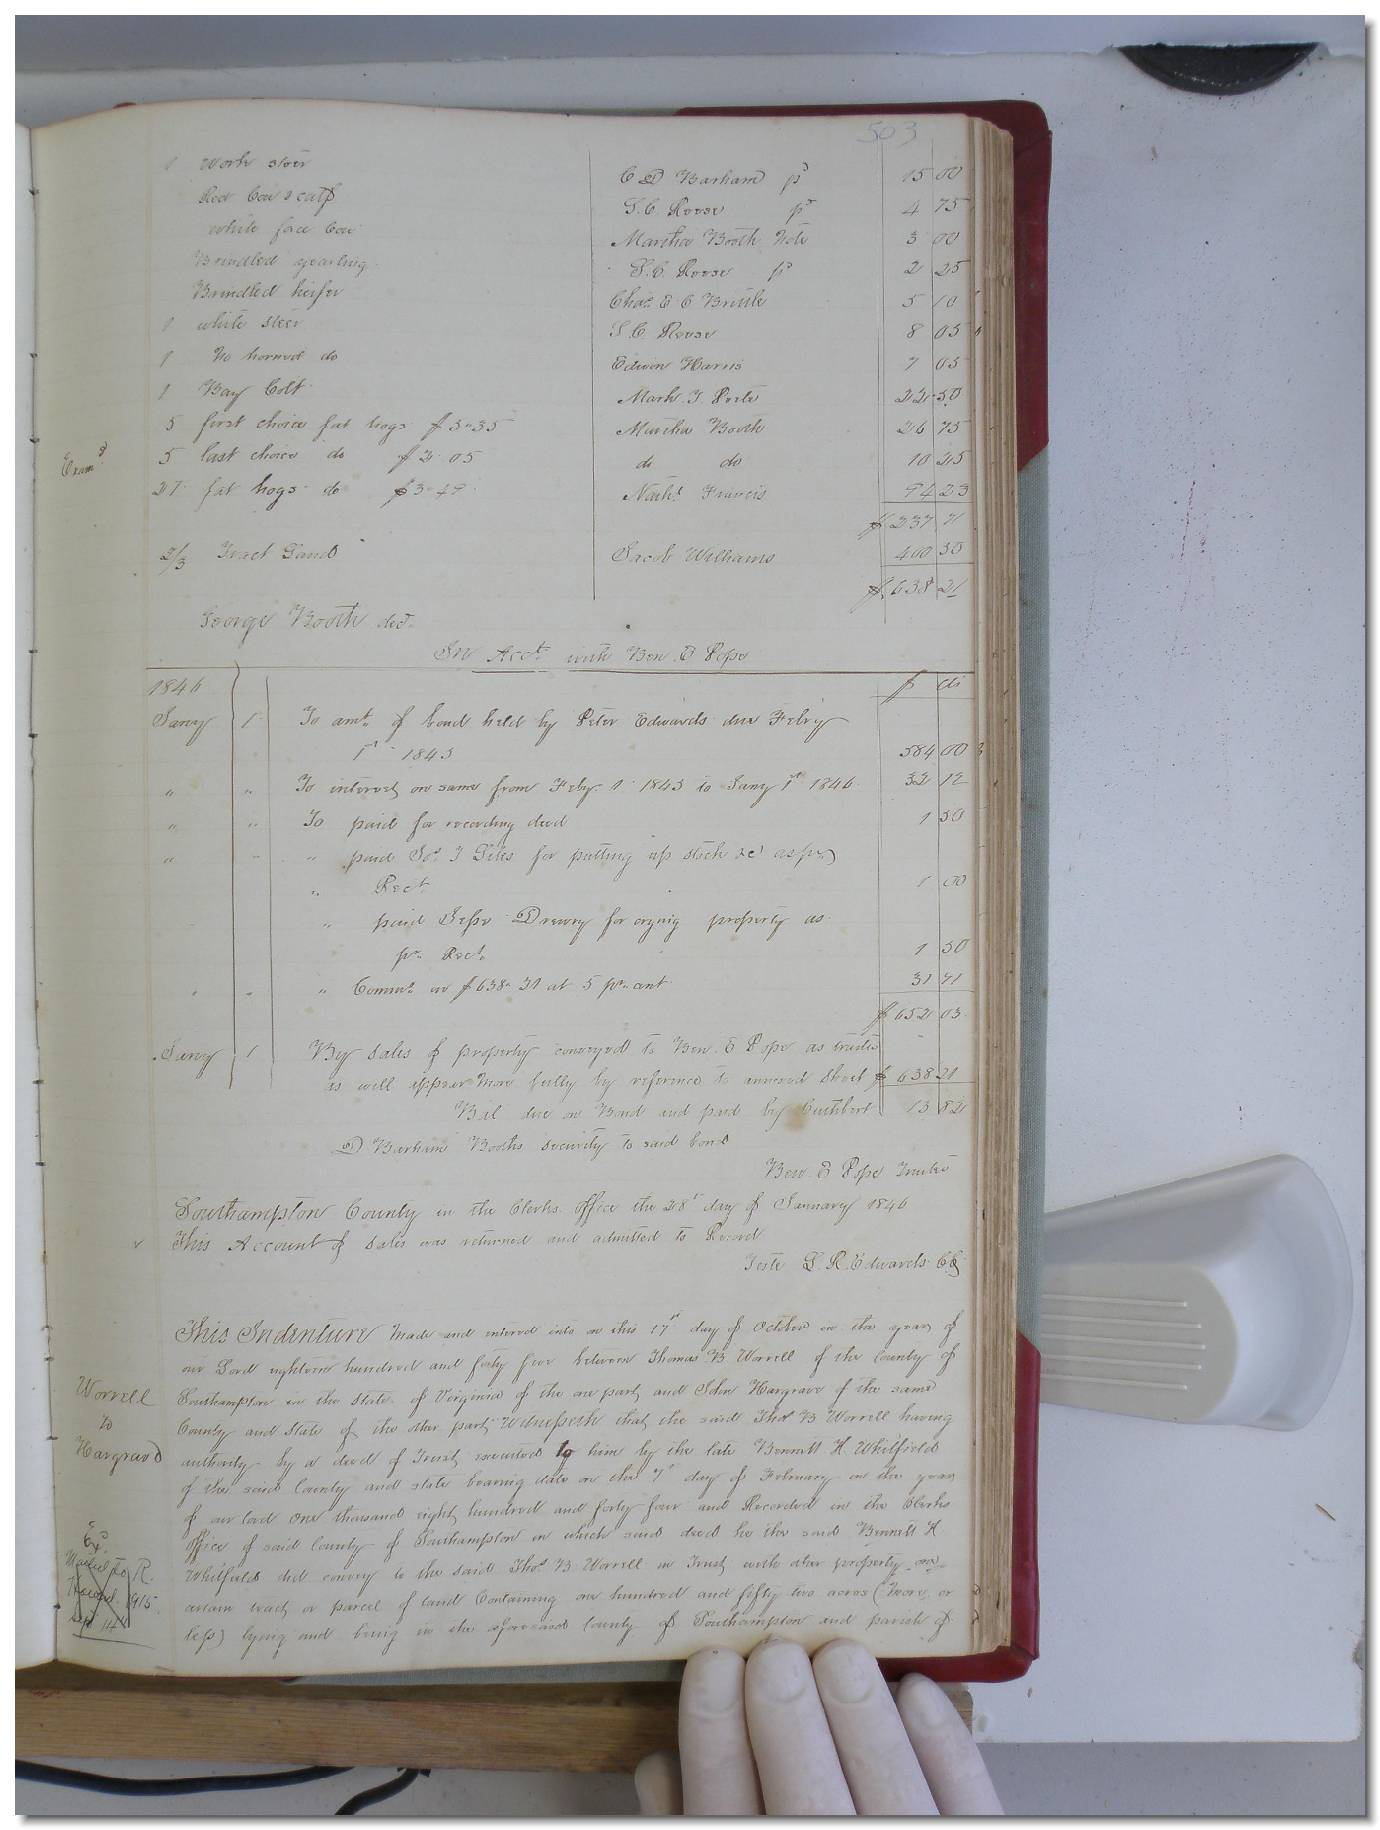 503
1 Work steer C D Barham pd 15 00
Red Cow & calf S. C. Reese pd 4 75
white face Cow Martha Booth Note 3 00
Brindled yearling S. C. Reese pd 2 25
Brindled heifer Chas E C Brittle 5 10
1 white steer S. C. Reese 8 05
1 No horned do Edwin Harris 7 05
1 Bay Colt Mark. J. 22.50
5 first choice fat hogs $5.35 Martha Booth 26 75
Examd
5 last choice do $2.05 do do 10 25
27 fat hogs do $3.49 Nathl Francis 94 23
$237 71
2/3 Tract Land Jacob Williams 400 50
$638 21
George Booth dect.
In Acct. with Ben. E Pope
1846 $ cts
Jany 1 To amt. of bond held by Peter Edwards due Febry
1st 1845 584 00
" " To interest on same from Feby. 1 1845 to Jany 1st 1846 32 12
" " To paid for recording deed 1 50
" " " paid for putting up stock &c as pr
" Rect. 1 00
" paid Jesse Drewry for crying property as
pr. Rect. 1 50
" " " Comms. on $638.21 at 5 pr. cent 31 91
$652 03
Jany 1 By Sales of property conveyed to Ben. E Pope as trustee
as will appear More fully by reference to annexed Sheet $ 638 21
Bal due on Bond and paid by Cuthbert 13 82
D Barham Booths security to said bond
Ben. E Pope Trustee
Southampton County in the Clerks Office the 28t day of January 1846
This Account of Sales was returned and admitted to Record
Teste L. R. Edwards CC
This Indenture Made and entered into on this 17t day of October in the year of
our Lord eighteen hundred and forty five between Thomas B Worrell of the County of
Worrell
to
Hargrave
Southampton in the State of Virginia of the one part and John Hargrave of the same
County and State of the other part Witnesseth that the said Thos B Worrell having
authority by a deed of Trust executed to him by the late Bennett H. Whitfield
of the said County and state bearing date on the 7t day of February in the year
of our lord one thousand eight hundred and forty four and Recorded in the Clerks
Office of said County of Southampton in which said deed he the said Bennett H.
Exd
Mailed to R.
1915
Whitfield did convey to the said Thos. B. Worrell in Trust with other property one
certain tract or parcel of land Containing one hundred and fifty two acres (more or
less) lying and being in the aforesaid County of Southampton and parish of